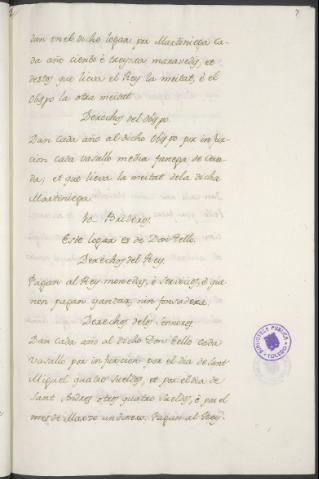 7
dan en el dicho logar por Martiniega ca-
da año ciento é treynta maravedis, et
destos que lieva el Rey la meitat, é el
Obispo la otra meitat
Derechos del Obispo.
Dan cada año al dicho Obispo por infur-
cion cada vasallo media fanega de ceva-
da; et que lieva la meitat dela dicha
Martiniega.
Este logar es de Don Tello.
Derechos del Rey.
Pagan al Rey monedas, é servicios, é que
non pagan yantar, nin fonsadera.
Derechos delos Sennores
Dan cada año al dicho Don Tello cada
vasallo por infurcion por el dia de Sant
Miguel quatro sueldos, et por el dia de
Sant Andres otros quatro sueldos, é por el
mes de Marzo un dinero. Pagan al Rey.
BIBLIOTECA PUBLICA
TOLEDO